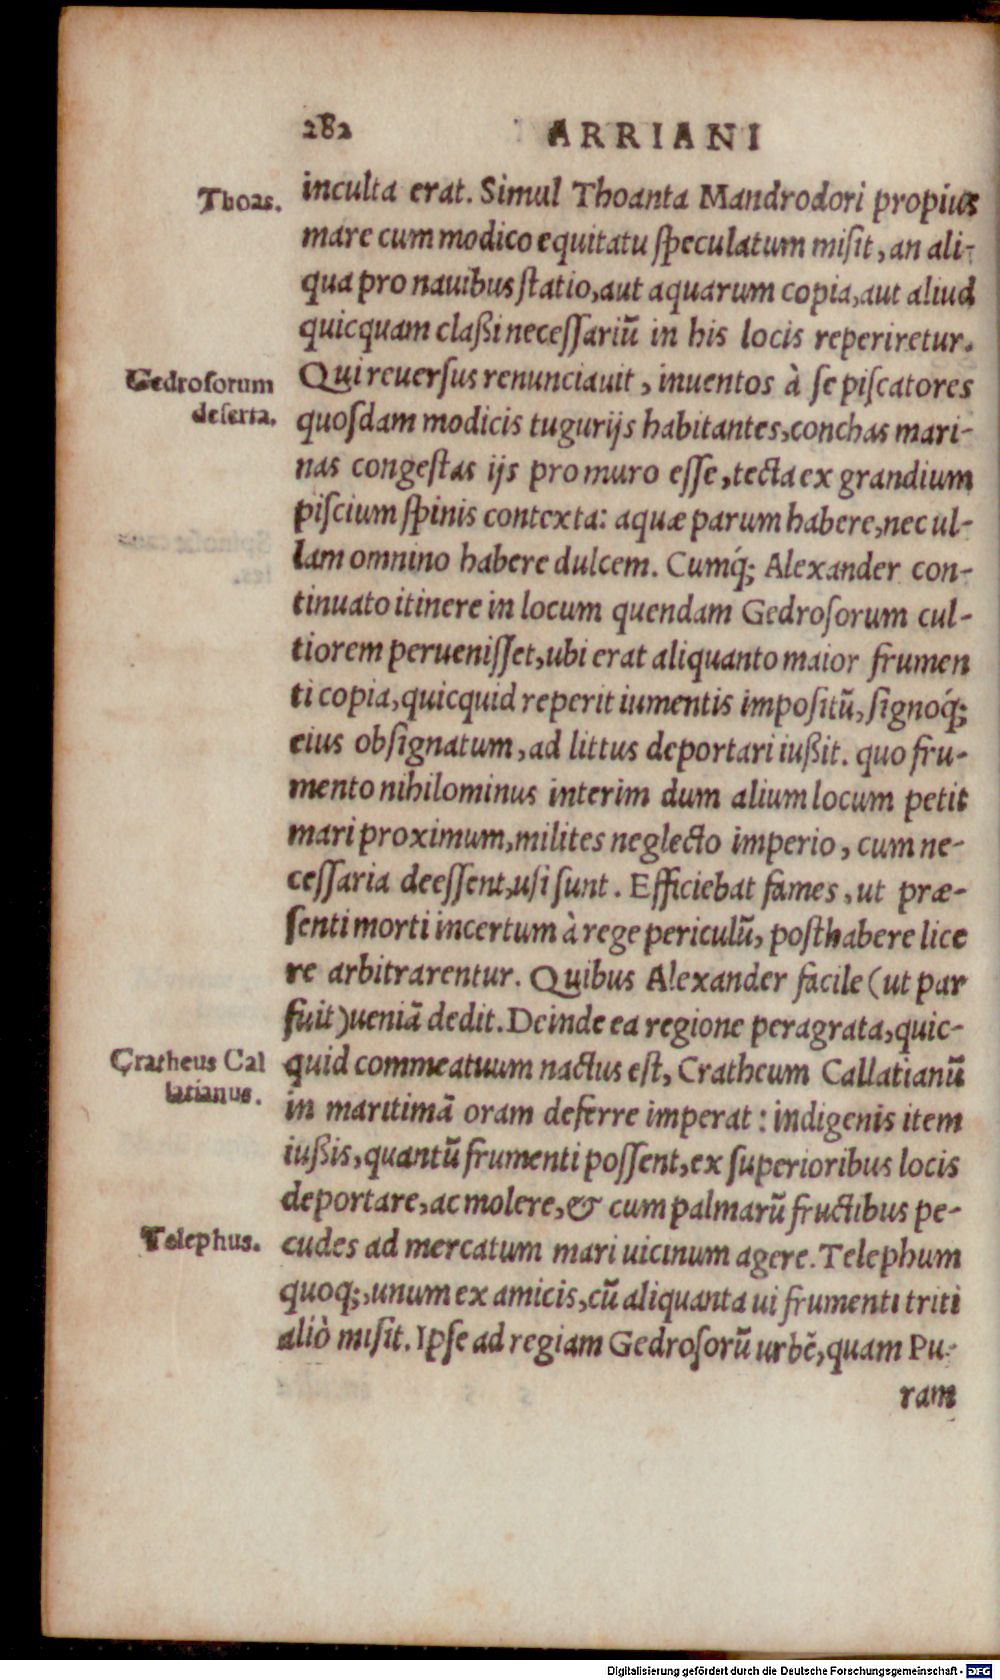 282 ARRIANI
Thoas.
inculta erat. Simul Thoanta Mandrodori propius
mare cum modico equitatu ſpeculatum miſit, an ali-
qua pro nauibus ſtatio, aut aquarum copia, aut aliud
quicquam claßi neceſſariũ in his locis reperiretur.
Gedroſorum
deſerta.
Qui reuerſus renunciauit, inuentos à ſe piſcatores
quoſdam modicis tugurijs habitantes, conchas mari-
nas congeſtas ijs pro muro eſſe, tecta ex grandium
piſcium ſpinis contexta: aquæ parum habere, nec ul-
lam omnino habere dulcem. Cumq́; Alexander con-
tinuato itinere in locum quendam Gedroſorum cul-
tiorem perueniſſet, ubi erat aliquanto maior frumen
ti copia, quicquid reperit iumentis impoſitũ, ſignoq́;
eius obſignatum, ad littus deportari iußit. quo fru-
mento nihilominus interim dum alium locum petit
mari proximum, milites neglecto imperio, cum ne-
ceſſaria deeſſent, uſi ſunt. Efficiebat fames, ut præ-
ſenti morti incertum à rege periculũ, poſthabere lice
re arbitrarentur. Quibus Alexander facile (ut par
fuit) ueniã dedit. Deinde ea regione peragrata, quic-
Cratheus Cal
latianus.
quid commeatuum nactus eſt, Cratheum Callatianũ
in maritimã oram deferre imperat: indigenis item
iußis, quantũ frumenti poſſent, ex ſuperioribus locis
deportare, ac molere, & cum palmarũ fructibus pe-
Telephus.
cudes ad mercatum mari uicinum agere. Telephum
quoq;, unum ex amicis, cũ aliquanta ui frumenti triti
aliò miſit. Ipſe ad regiam Gedroſorũ urbẽ, quam Pu-
ram
Digitalisierung gefördert durch die Deutsche Forschungsgemeinschaft - DFG